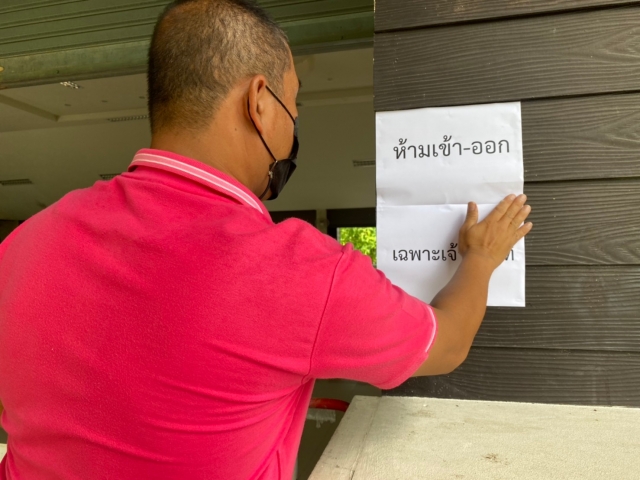 ห้ามเข้า-ออก
เฉพาะเจ้